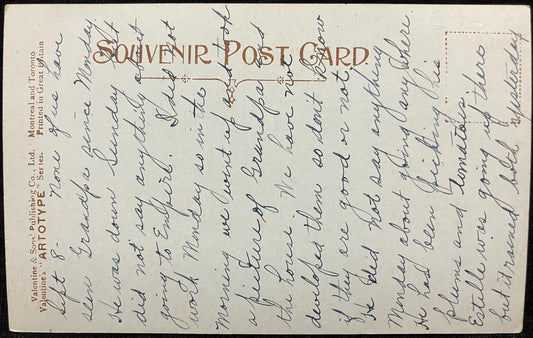 SOUVENIR POST CARD.
Valentine & Sons' Publishing Co., Ltd. Montreal and Toronto
Valentine's "ARTOTYPE" Series. Printed in Great Britain
Sept 8 - None of us have
seen Grandpa since Monday.
He was down Sunday but
did not say anything about
going to Enfield. I did not
work Monday so in the
morning we went up and took
a picture of Grandpa and
the house. We have not
developed them so don't know
if they are good or not.
He did not say anything
Monday about going any where
He had been picking his
plums and tomatoes.
Estelle was going up there
but it rained both yesterday